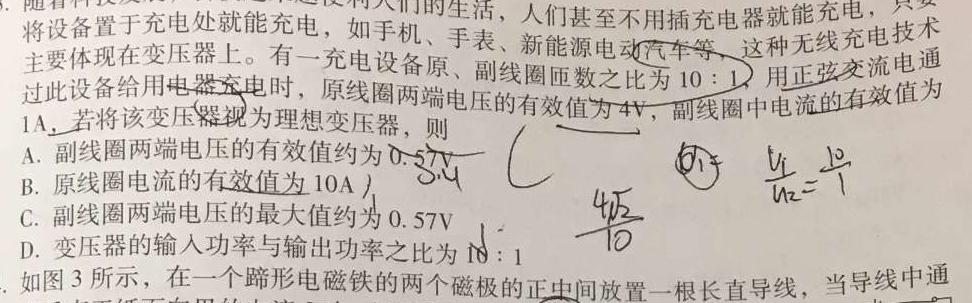 人们的生活，人们甚至不用插充电器就能充电，只要
将设备置于充电处就能充电，如手机、手表、新能源电动汽车等，这种无线充电技术
主要体现在变压器上。有一充电设备原、副线圈匝数之比为 10：1，用正弦交流电通
过此设备给用电器充电时，原线圈两端电压的有效值为 4V，副线圈中电流的有效值为
1A，若将该变压器视为理想变压器，则
A. 副线圈两端电压的有效值约为 0.57V
0.4
B. 原线圈电流的有效值为 10A
C. 副线圈两端电压的最大值约为 0.57V
D. 变压器的输入功率与输出功率之比为 10：1
U1/U2=10/1
4√2/10
如图 3 所示，在一个蹄形电磁铁的两个磁极的正中间放置一根长直导线，当导线中通